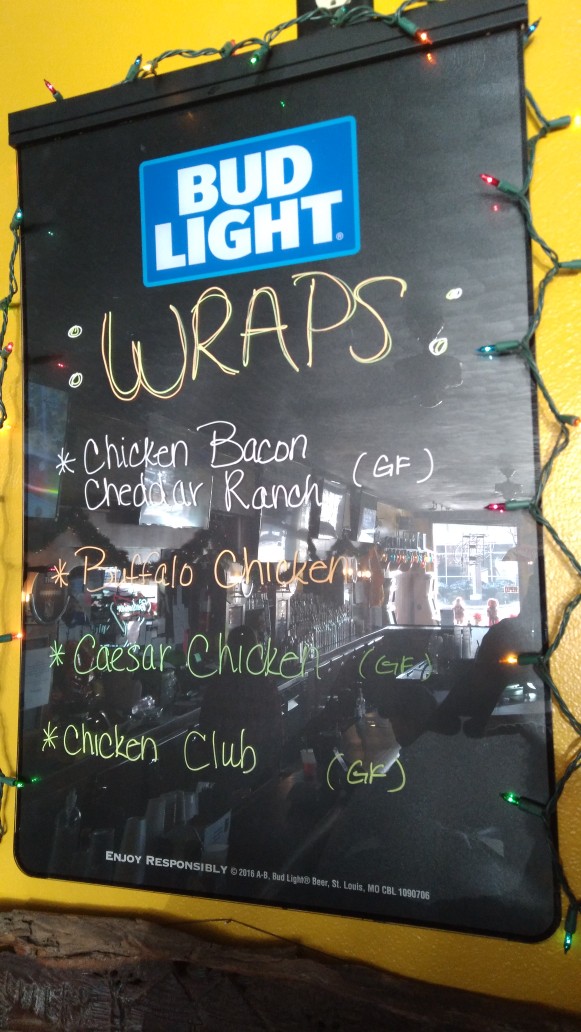 BUD
LIGHT®
: WRAPS :
* Chicken Bacon (GF)
Cheddar Ranch
* Buffalo Chicken
* Caesar Chicken (GF)
* Chicken Club (GF)
ENJOY RESPONSIBLY © 2016 A-B, Bud Light® Beer, St. Louis, MO CBL 1090706